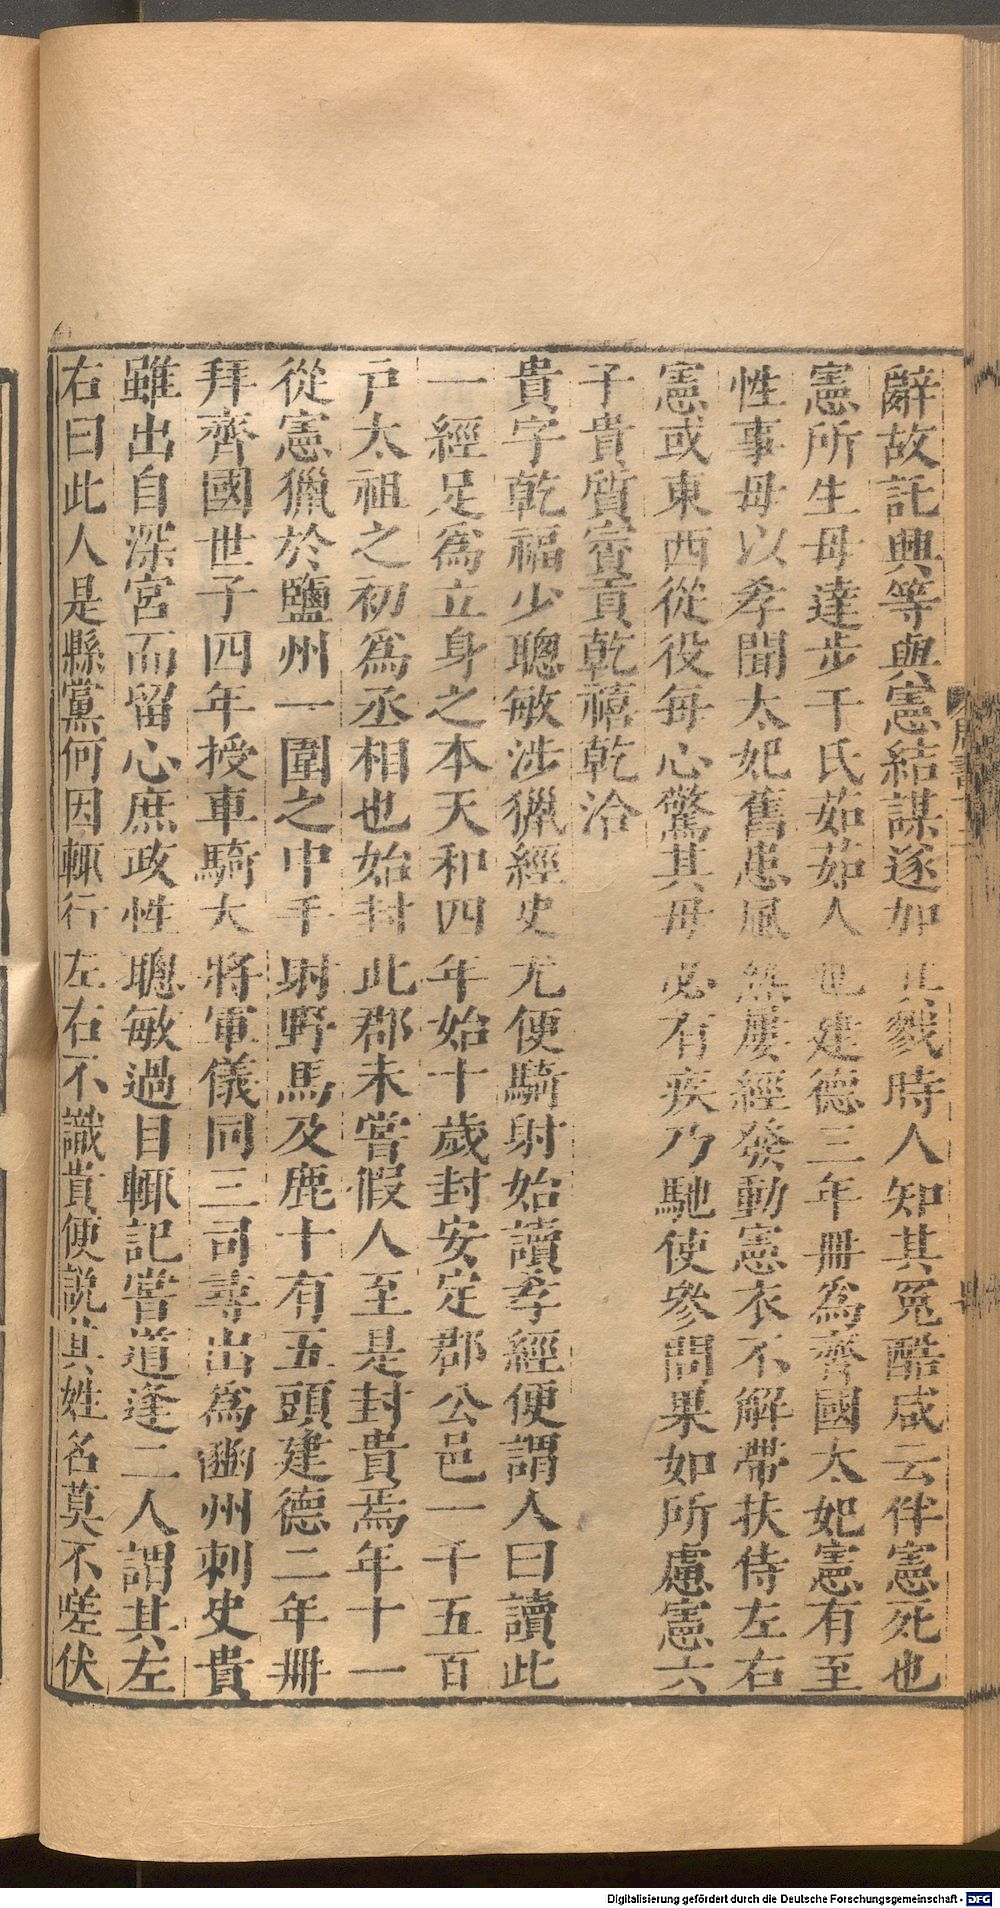 辭故託興等與憲結謀遂加其戮時人知其冤酷咸云伴憲死也
憲所生母達步干氏茹茹人也建德三年冊爲齊國太妃憲有至
性事母以孝聞太妃舊患風熱屢經發動憲衣不解帶扶侍左右
憲或東西從役每心驚其母必有疾乃馳使參問果如所慮憲六
子貴質賨貢乾禧乾洽
貴字乾福少聰敏涉獵經史尤便騎射始讀孝經便謂人曰讀此
一經足爲立身之本天和四年始十歲封安定郡公邑一千五百
戸太祖之初爲丞相也始封此郡未嘗假人至是封貴焉年十一
從憲獵於鹽州一圍之中手射野馬及鹿十有五頭建德二年冊
拜齊國世子四年授車騎大將軍儀同三司尋出爲豳州刺史貴
雖出自深宮而留心庶政性聰敏過目輒記嘗道逢二人謂其左
右曰此人是縣黨何因輒行左右不識貴便説其姓名莫不嗟伏
Digitalisierung gefördert durch die Deutsche Forschungsgemeinschaft - DFG